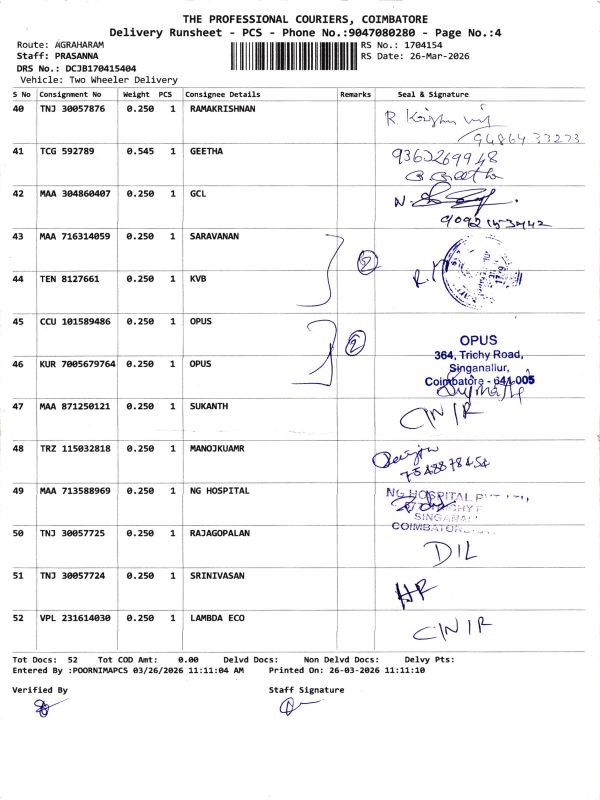 THE PROFESSIONAL COURIERS, COIMBATORE
Delivery Runsheet - PCS - Phone No.:9047080280 - Page No.:4
Route: AGRAHARAM
Staff: PRASANNA
DRS No.: DCJB170415404
Vehicle: Two Wheeler Delivery
RS No.: 1704154
RS Date: 26-Mar-2026
S No Consignment No Weight PCS Consignee Details Remarks Seal & Signature
40 TNJ 30057876 0.250 1 RAMAKRISHNAN
9486433273
41 TCG 592789 0.545 1 GEETHA
9363269948
42 MAA 304860407 0.250 1 GCL
43 MAA 716314059 0.250 1 SARAVANAN
2
44 TEN 8127661 0.250 1 KVB
45 CCU 101589486 0.250 1 OPUS
2
46 KUR 7005679764 0.250 1 OPUS
OPUS
364, Trichy Road,
Singanallur,
Coimbatore - 641 005
47 MAA 871250121 0.250 1 SUKANTH
C/N/R
48 TRZ 115032818 0.250 1 MANOJKUAMR
49 MAA 713588969 0.250 1 NG HOSPITAL
NG HOSPITAL PVT
SINGANAL
COIMBATORE
50 TNJ 30057725 0.250 1 RAJAGOPALAN
D/L
51 TNJ 30057724 0.250 1 SRINIVASAN
52 VPL 231614030 0.250 1 LAMBDA ECO
C/N/R
Tot Docs: 52 Tot COD Amt: 0.00 Delvd Docs: Non Delvd Docs: Delvy Pts:
Entered By :POORNIMAPCS 03/26/2026 11:11:04 AM Printed On: 26-03-2026 11:11:10
Verified By Staff Signature